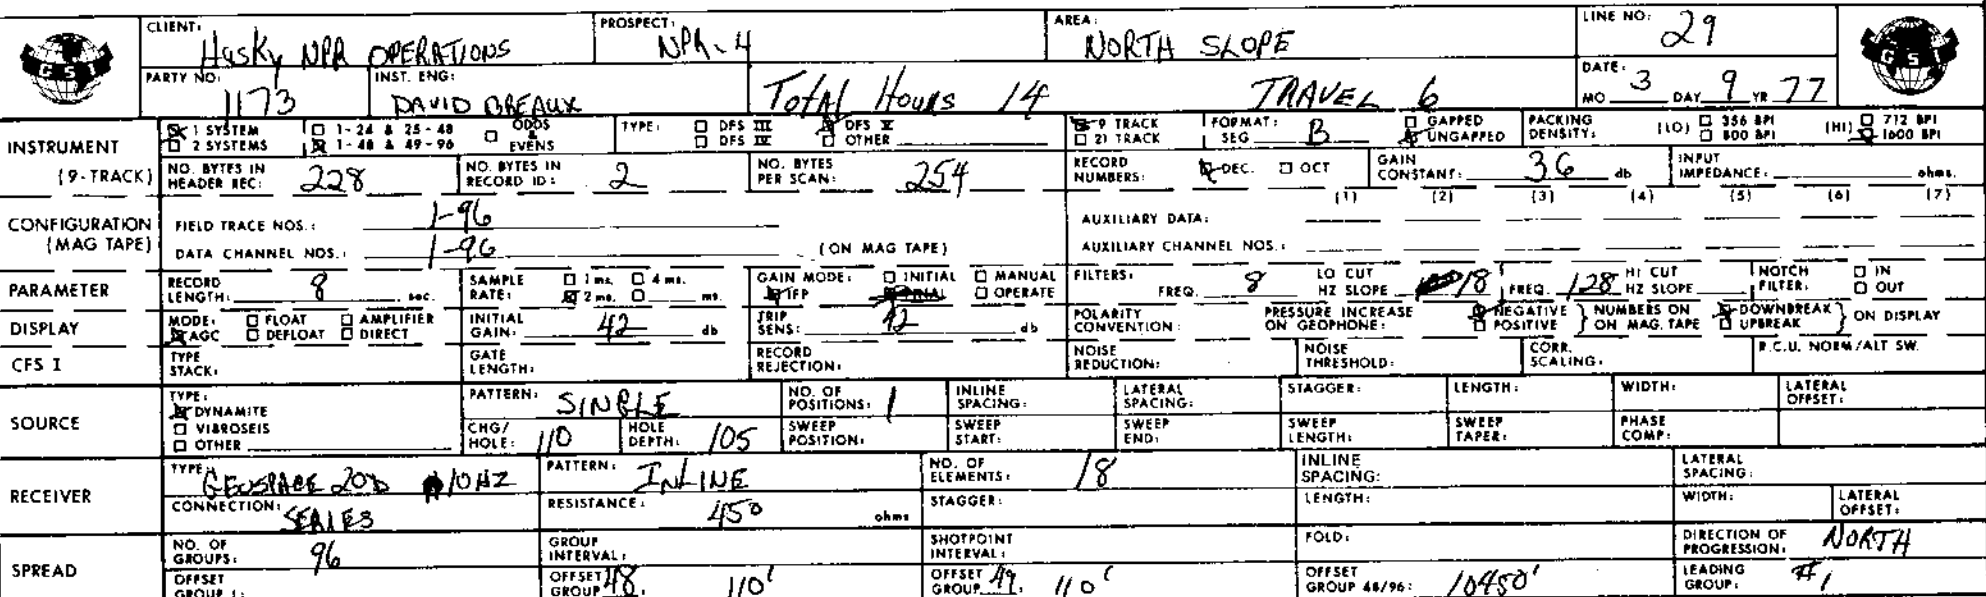 CLIENT: Husky NPR OPERATIONS PROSPECT: NPR-4 AREA: NORTH SLOPE LINE NO: 29
GSI GSI
PARTY NO: 1173 INST. ENG: DAVID BREAUX Total Hours 14 TRAVEL 6 DATE: MO 3 DAY 9 YR 77
INSTRUMENT ☒ 1 SYSTEM ☐ 1-24 & 25-48 ☐ ODDS & EVENS TYPE: ☐ DFS III ☒ DFS V ☒ 9 TRACK FORMAT: ☐ GAPPED PACKING DENSITY: (LO) ☐ 356 BPI (HI) ☐ 712 BPI
☐ 2 SYSTEMS ☒ 1-48 & 49-96 ☐ DFS IV ☐ OTHER ☐ 21 TRACK SEG B ☒ UNGAPPED ☐ 800 BPI ☒ 1600 BPI
(9-TRACK) NO. BYTES IN HEADER REC: 228 NO. BYTES IN RECORD ID: 2 NO. BYTES PER SCAN: 254 RECORD NUMBERS: ☒ DEC. ☐ OCT GAIN CONSTANT: 36 db INPUT IMPEDANCE: ohms.
(1) (2) (3) (4) (5) (6) (7)
CONFIGURATION FIELD TRACE NOS.: 1-96 AUXILIARY DATA:
(MAG TAPE) DATA CHANNEL NOS.: 1-96 (ON MAG TAPE) AUXILIARY CHANNEL NOS.:
PARAMETER RECORD LENGTH: 8 sec. SAMPLE RATE: ☐ 1 ms. ☐ 4 ms. ☒ 2 ms. ☐ ms. GAIN MODE: ☐ INITIAL ☐ MANUAL ☒ IFP FINAL ☐ OPERATE FILTERS: FREQ. 8 LO CUT HZ SLOPE 18 FREQ. 128 HI CUT HZ SLOPE NOTCH FILTER: ☐ IN ☐ OUT
DISPLAY MODE: ☐ FLOAT ☐ AMPLIFIER ☒ AGC ☐ DEFLOAT ☐ DIRECT INITIAL GAIN: 42 db TRIP SENS: 12 db POLARITY CONVENTION: PRESSURE INCREASE ON GEOPHONE: ☒ NEGATIVE ☐ POSITIVE } NUMBERS ON ON MAG. TAPE ☒ DOWNBREAK ☐ UPBREAK } ON DISPLAY
CFS I TYPE STACK: GATE LENGTH: RECORD REJECTION: NOISE REDUCTION: NOISE THRESHOLD: CORR. SCALING: R.C.U. NORM/ALT SW.
SOURCE TYPE: ☒ DYNAMITE ☐ VIBROSEIS ☐ OTHER PATTERN: SINGLE NO. OF POSITIONS: 1 INLINE SPACING: LATERAL SPACING: STAGGER: LENGTH: WIDTH: LATERAL OFFSET:
CHG/HOLE: 110 HOLE DEPTH: 105 SWEEP POSITION: SWEEP START: SWEEP END: SWEEP LENGTH: SWEEP TAPER: PHASE COMP:
RECEIVER TYPE: GEOSPACE 20D 10HZ PATTERN: INLINE NO. OF ELEMENTS: 18 INLINE SPACING: LATERAL SPACING:
CONNECTION: SERIES RESISTANCE: 450 ohms STAGGER: LENGTH: WIDTH: LATERAL OFFSET:
SPREAD NO. OF GROUPS: 96 GROUP INTERVAL: SHOTPOINT INTERVAL: FOLD: DIRECTION OF PROGRESSION: NORTH
OFFSET GROUP 1: OFFSET GROUP 48: 110' OFFSET GROUP 49: 110' OFFSET GROUP 48/96: 10450' LEADING GROUP: #1